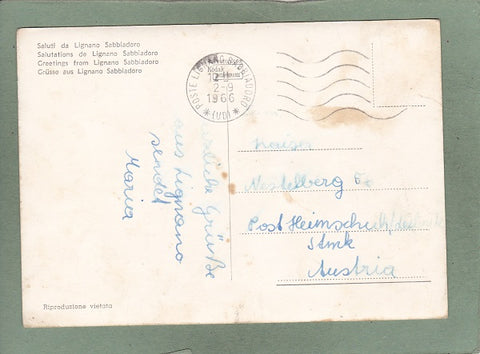 Saluti da Lignano Sabbiadoro
Salutations de Lignano Sabbiadoro
Greetings from Lignano Sabbiadoro
Grüsse aus Lignano Sabbiadoro
POSTE LIGNANO SABBIADORO
2-9
1966
* (UD) *
Herzliche Grüße
aus Lignano
sendet
Maria
Kaiser
Nestelberg
Post Heimschuh
Stmk
Austria
Riproduzione vietata